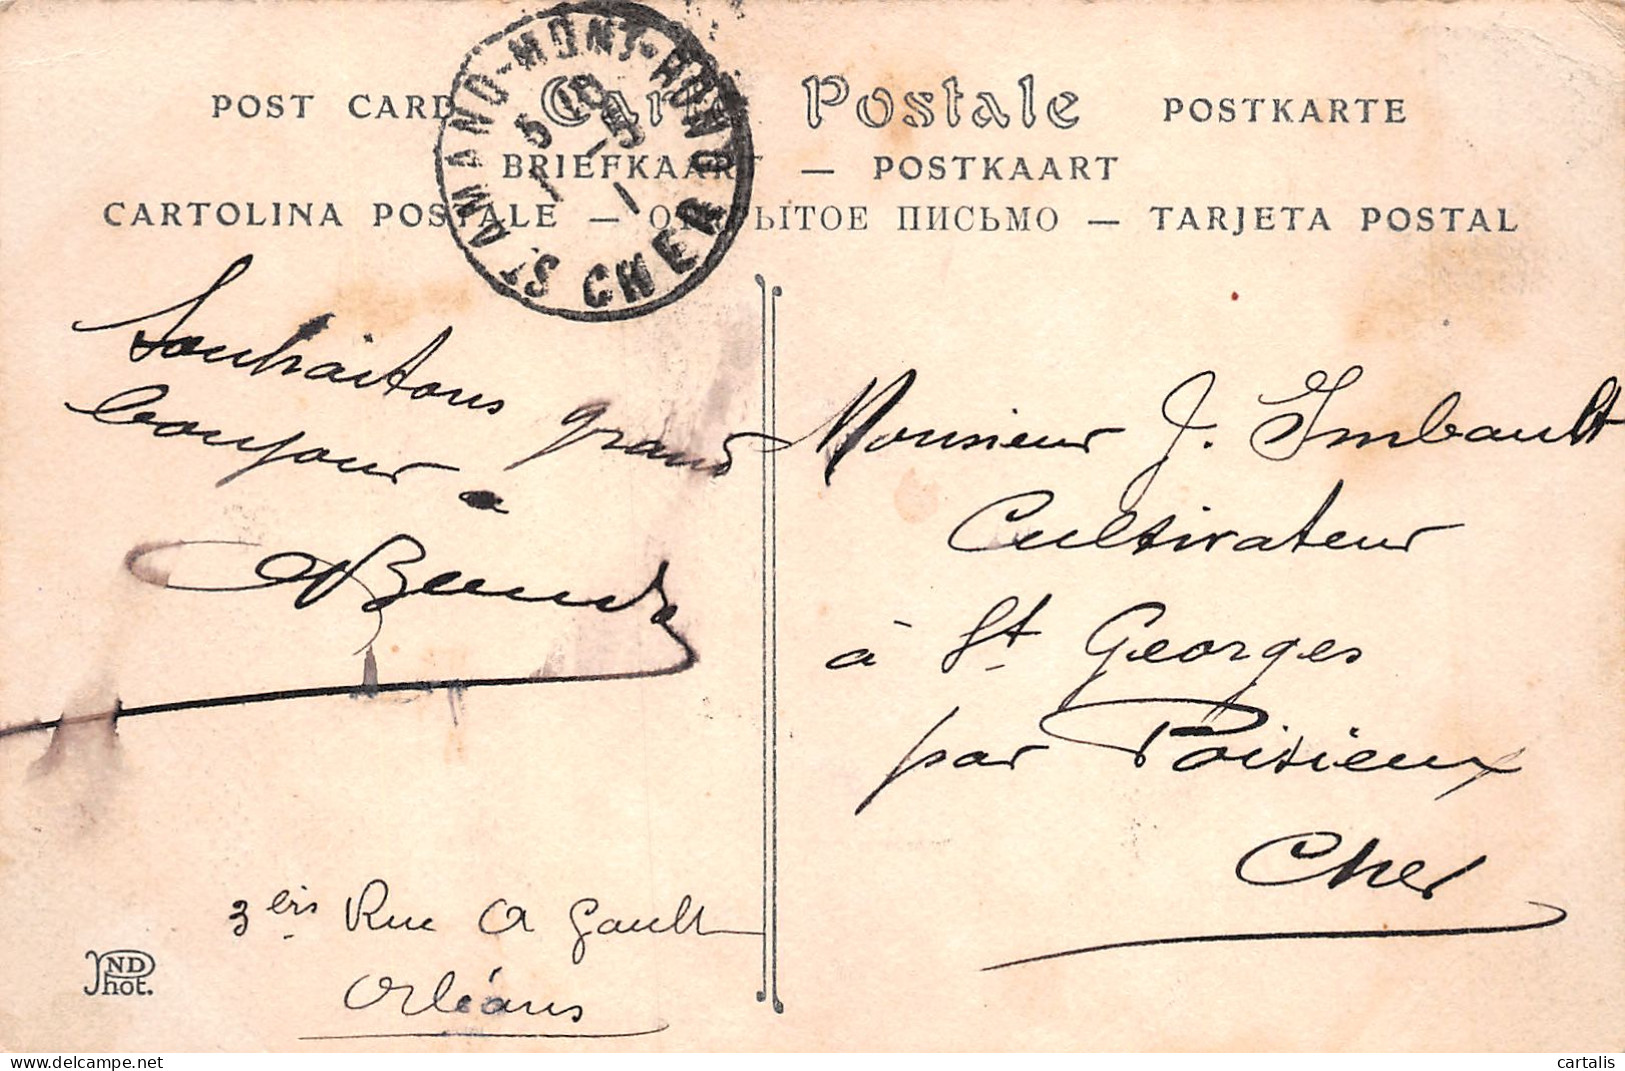 POST CARD Carte Postale POSTKARTE
BRIEFKAART — POSTKAART
CARTOLINA POSTALE — ОТКРЫТОЕ ПИСЬМО — TARJETA POSTAL
ST AMAND-MONT-ROND
CHER
Souhaitons grand
bonjour à
Monsieur J. Imbault
Cultivateur
à St Georges
par Poisieux
Cher
3 bis Rue A Gault
Orléans
ND
Phot.
cartalis